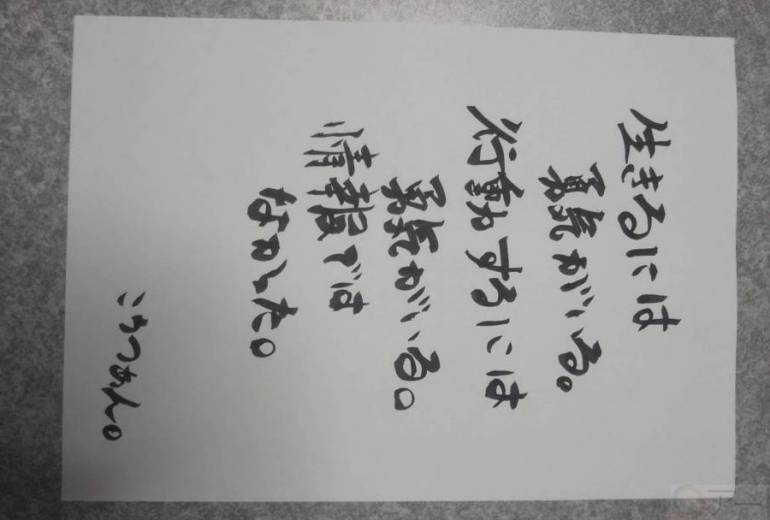 生きるには
勇気がいる。
行動するには
勇気がいる。
情報では
なかった。
こうつぁん。